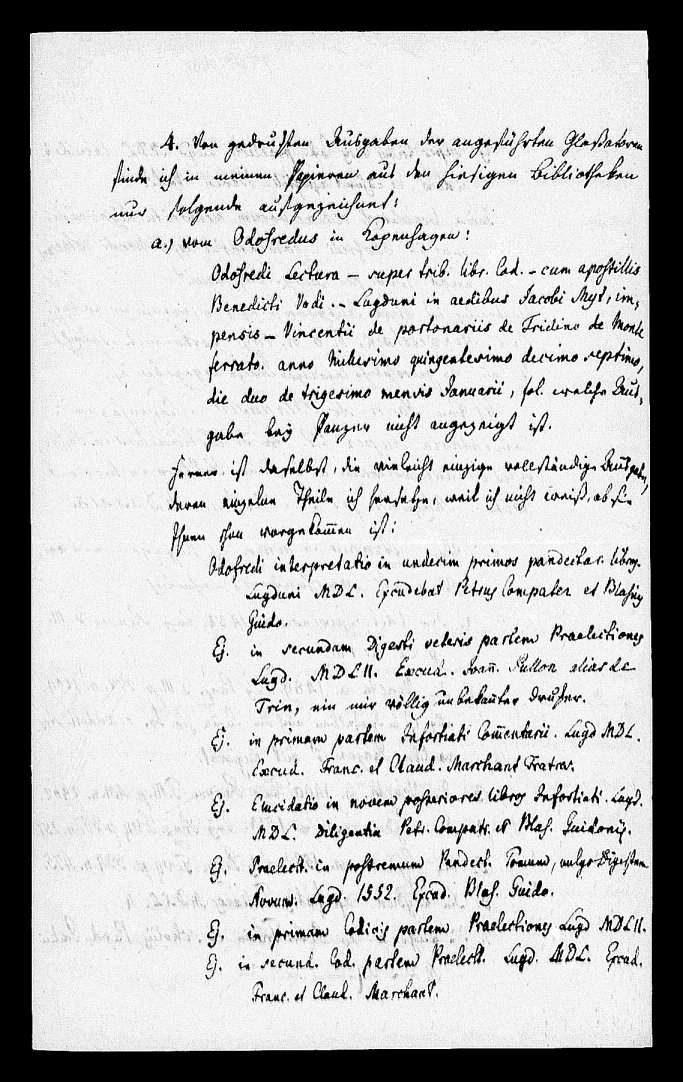 4. Von gedruckten Ausgaben der angeführten Glossatoren
finde ich in meinen Papieren aus den hiesigen Bibliotheken
nur folgende aufgezeichnet:
a.) vom Odofredus in Kopenhagen:
Odofredi Lectura – super trib. libr. Cod. – cum apostillis
Benedicti Vadi. – Lugduni in aedibus Jacobi Myt, im-
pensis – Vincentii de portonariis de Tridino de Monte
ferrato. anno Millesimo quingentesimo decimo septimo,
die duo de trigesimo mensis Januarii, fol. welche Aus-
gabe bey Panzer nicht angezeigt ist.
Ferner ist daselbst, die vielleicht einzige vollständige Ausgabe,
deren einzelne Theile ich hersetze, weil ich nicht weiß, ob sie
Ihnen schon vorgekom̄en ist:
Odofredi interpretatio in undecim primos pandectar. libros.
Lugduni MDL. Excudebat Petrus Compater et Blasius
Guido.
Ej. in secundam Digesti veteris partem Praelectiones
Lugd. MDLII. Excud. Joan̄. Pullon alias de
Trin, ein mir völlig unbekan̄ter Drucker.
Ej. in primam partem Infortiati Com̄entarii. Lugd MDL.
Excud. Franc. et Claud. Marchant Fratres.
Ej. Enucidatio in novem posteriores libros Infortiati. Lugd.
MDL. Diligentia Petr. Compatr. et Blas. Guidonis.
Ej. Praelect. in postremum Pandect. Tomum, vulgo Digestum
Novum. Lugd. 1552. Excud. Blas. Guido.
Ej. in primam Codicis partem Praelectiones Lugd MDLII.
Ej. in secund. Cod. partem Praelect. Lugd. MDL. Excud.
Franc. et Claud. Marchant.